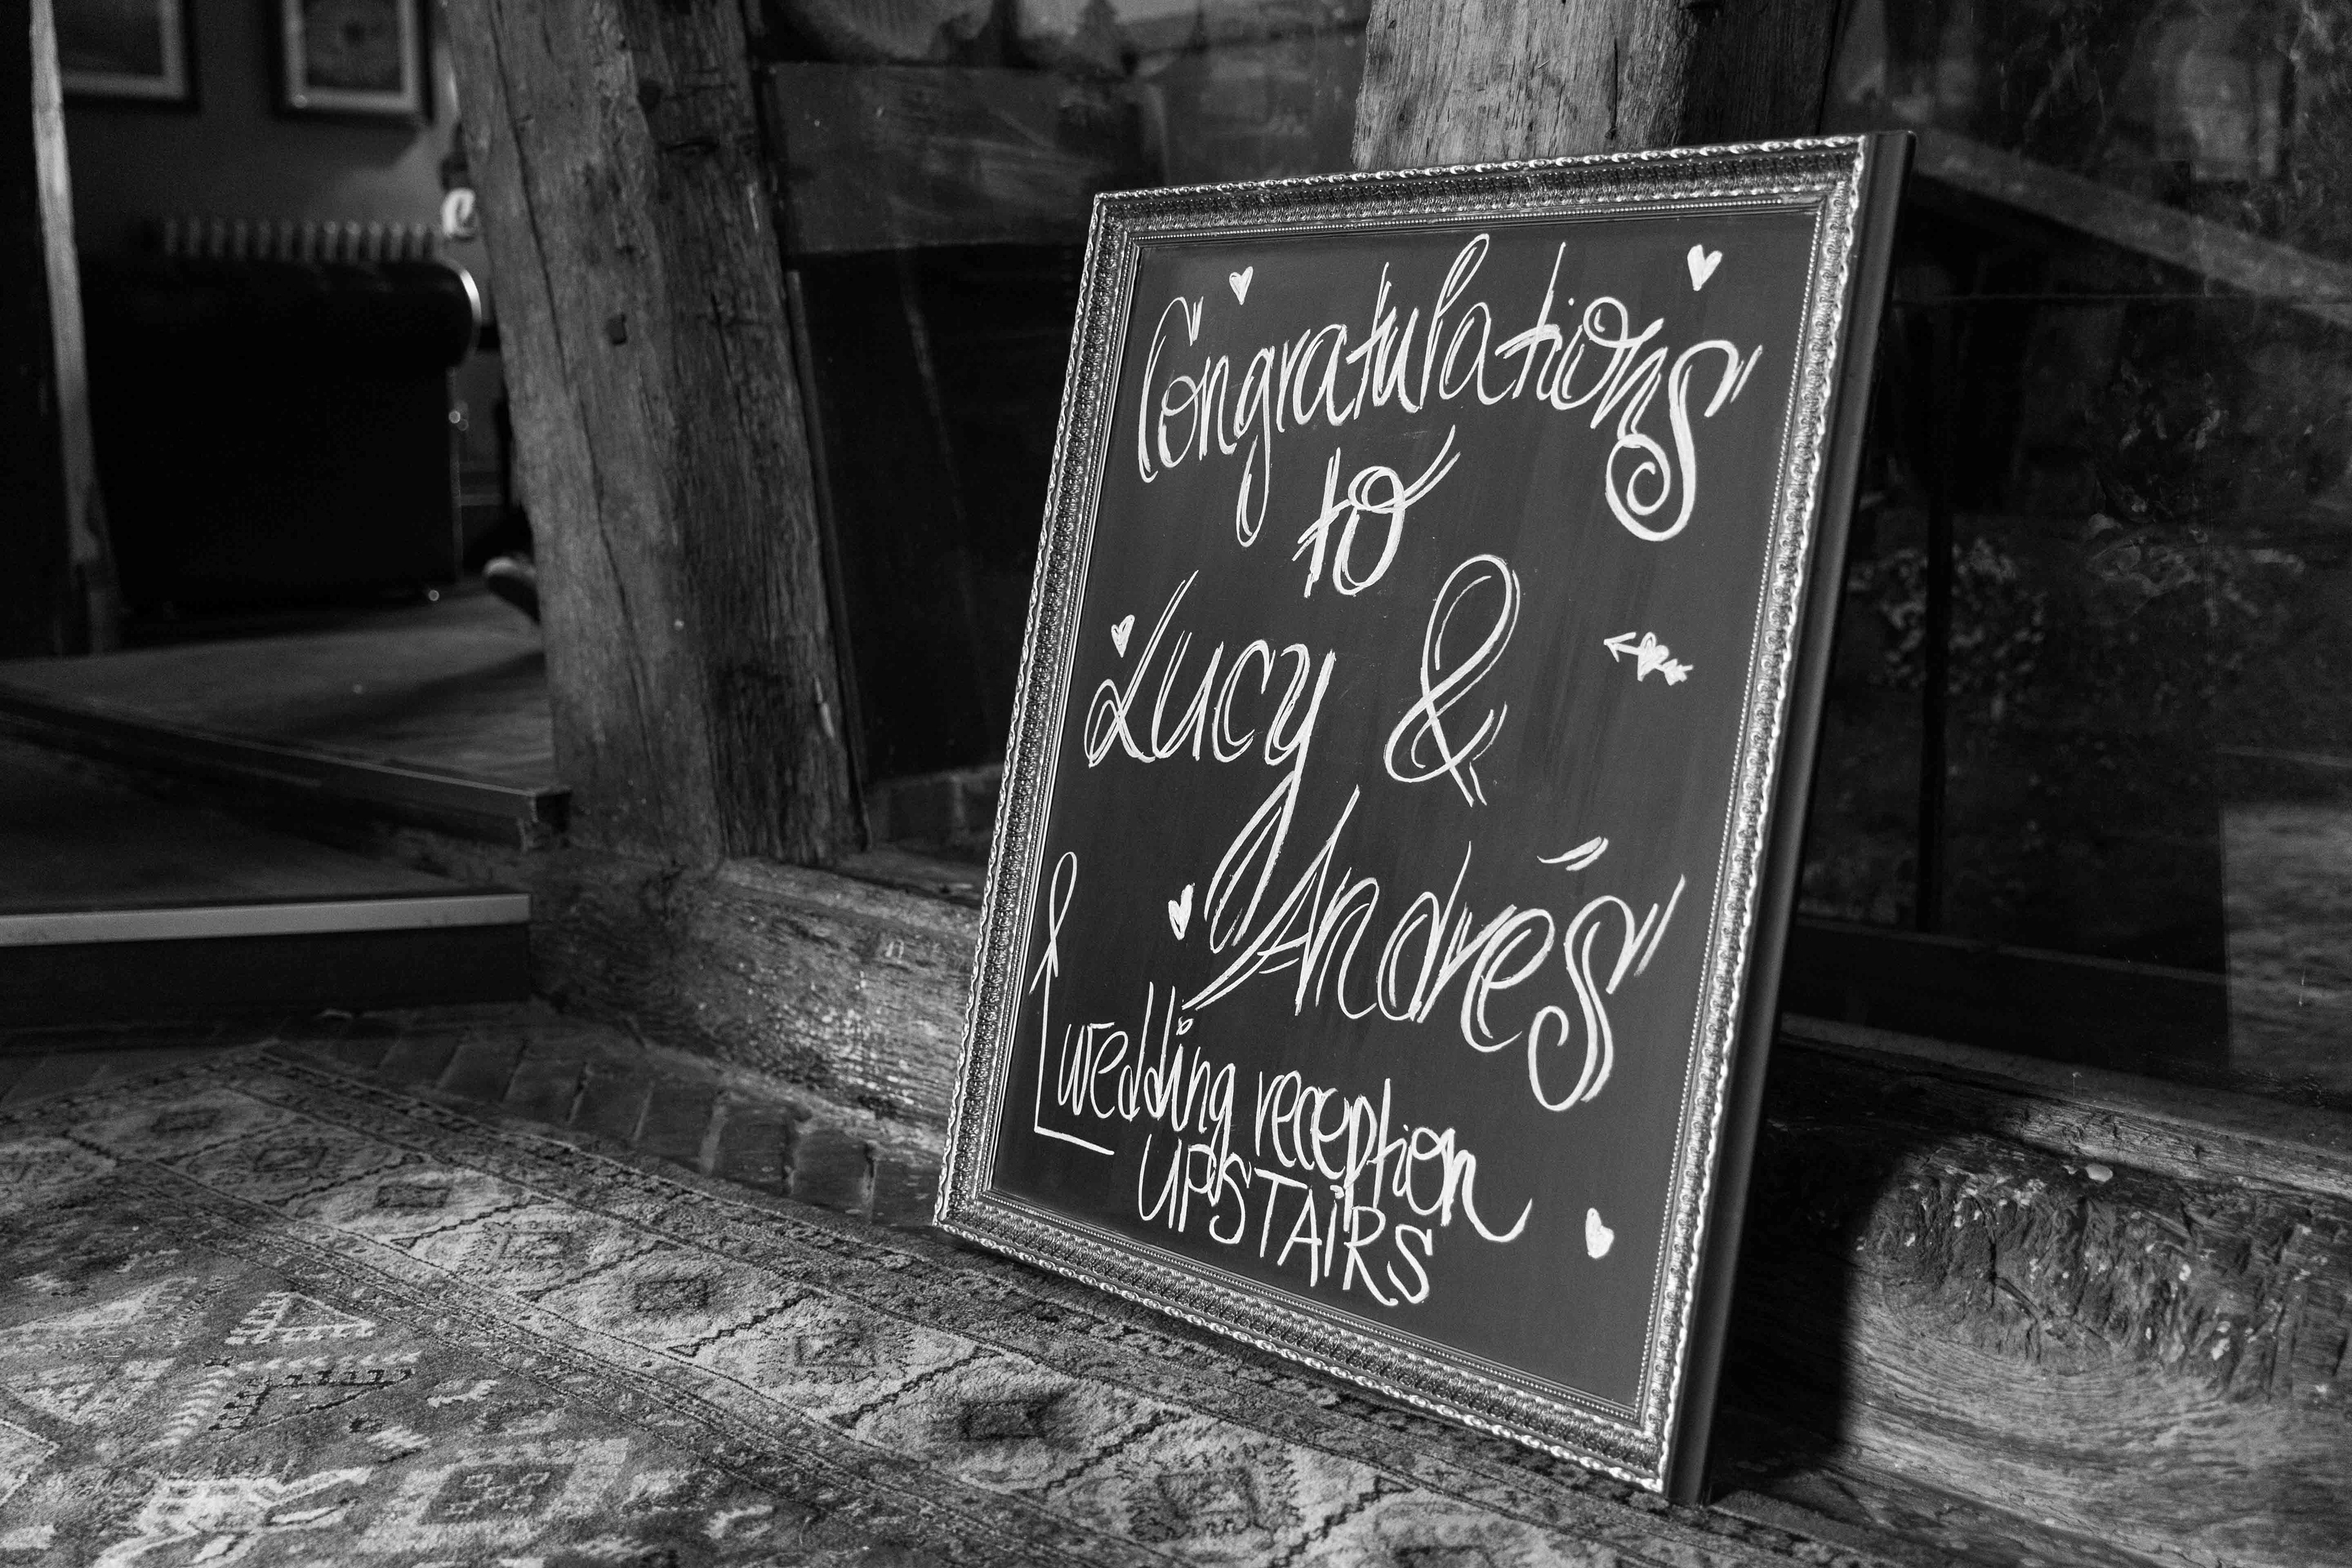 Congratulations
to
Lucy &
Andrés
wedding reception
UPSTAiRS